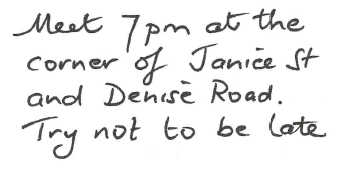 Meet 7pm at the
corner of Janice St
and Denise Road.
Try not to be late